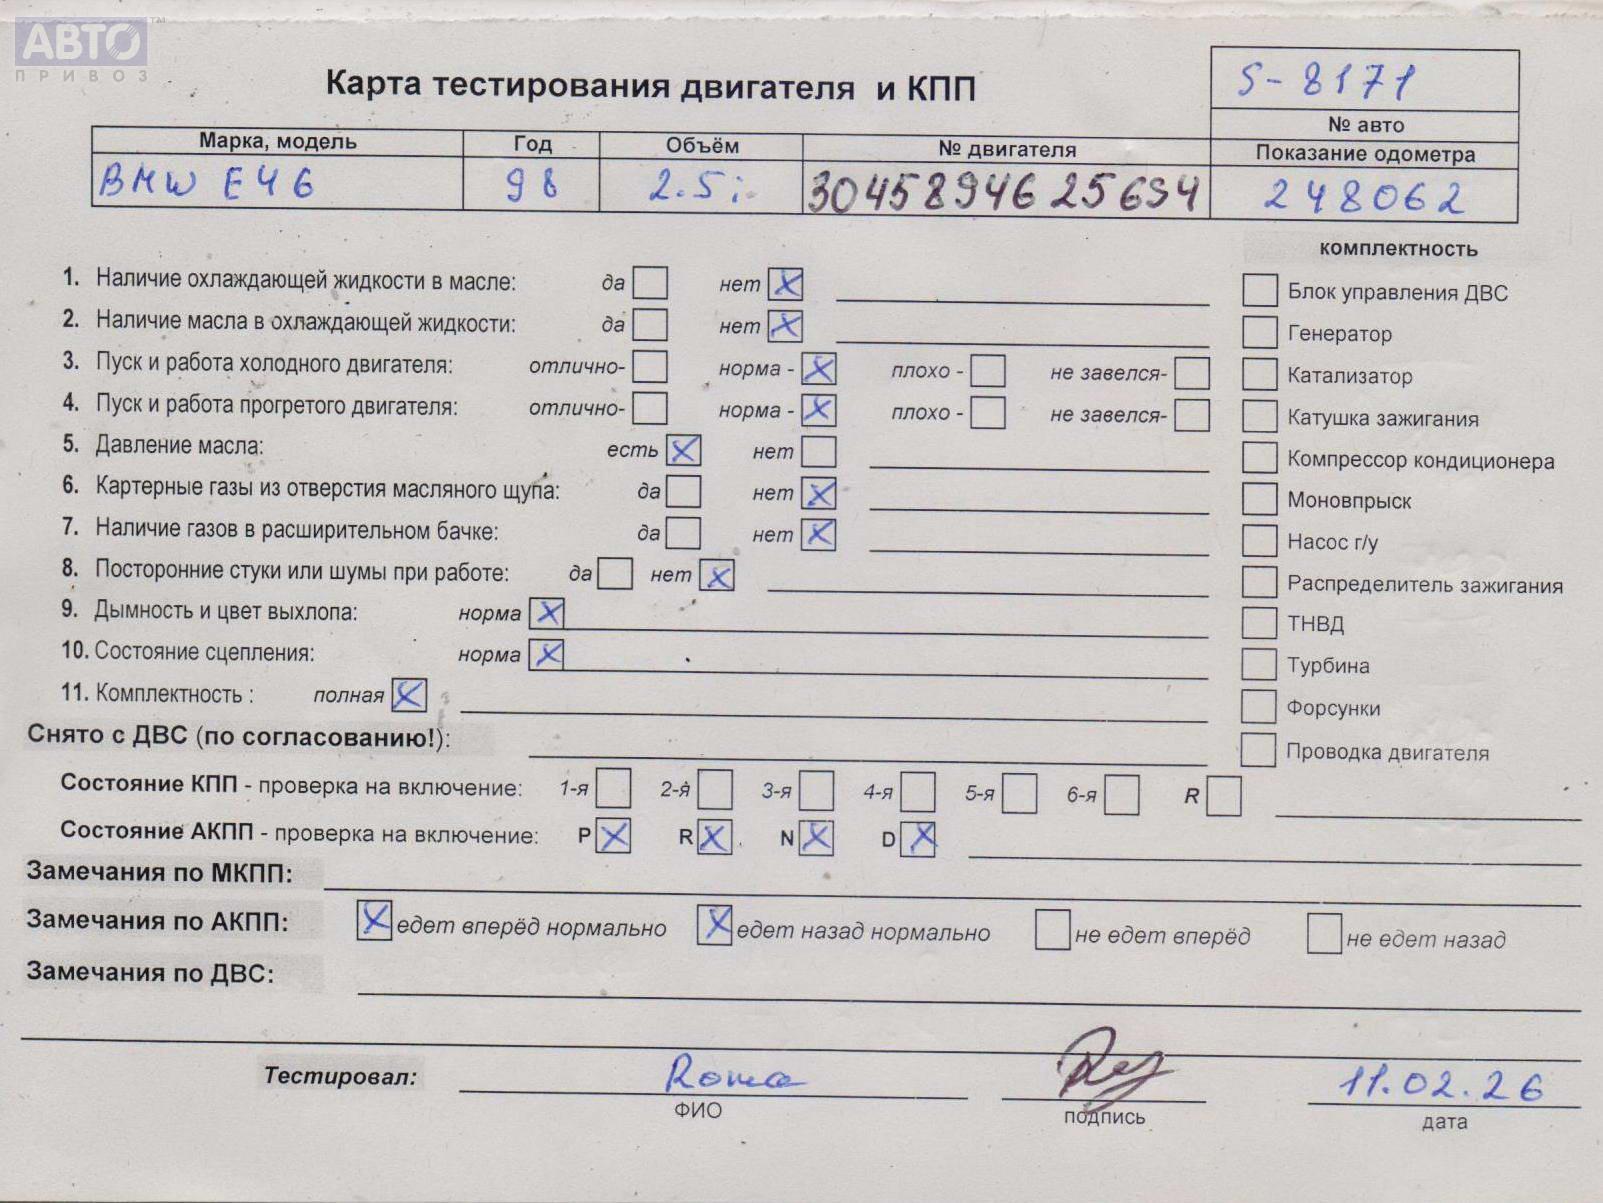 АВТО ™
ПРИВОЗ
Карта тестирования двигателя и КПП
S-8171
№ авто
Марка, модель Год Объём № двигателя Показание одометра
BMW E46 98 2.5i 30458946 25694 248062
комплектность
1. Наличие охлаждающей жидкости в масле: да нет X
Блок управления ДВС
2. Наличие масла в охлаждающей жидкости: да нет X
Генератор
3. Пуск и работа холодного двигателя: отлично- норма - X плохо - не завелся-
Катализатор
4. Пуск и работа прогретого двигателя: отлично- норма - X плохо - не завелся-
Катушка зажигания
5. Давление масла: есть X нет
Компрессор кондиционера
6. Картерные газы из отверстия масляного щупа: да нет X
Моновпрыск
7. Наличие газов в расширительном бачке: да нет X
Насос г/у
8. Посторонние стуки или шумы при работе: да нет X
Распределитель зажигания
9. Дымность и цвет выхлопа: норма X
ТНВД
10. Состояние сцепления: норма X
Турбина
11. Комплектность : полная X
Форсунки
Снято с ДВС (по согласованию!):
Проводка двигателя
Состояние КПП - проверка на включение: 1-я 2-я 3-я 4-я 5-я 6-я R
Состояние АКПП - проверка на включение: P X R X N X D X
Замечания по МКПП:
Замечания по АКПП: X едет вперёд нормально X едет назад нормально не едет вперёд не едет назад
Замечания по ДВС:
Тестировал: Roma 11.02.26
ФИО подпись дата